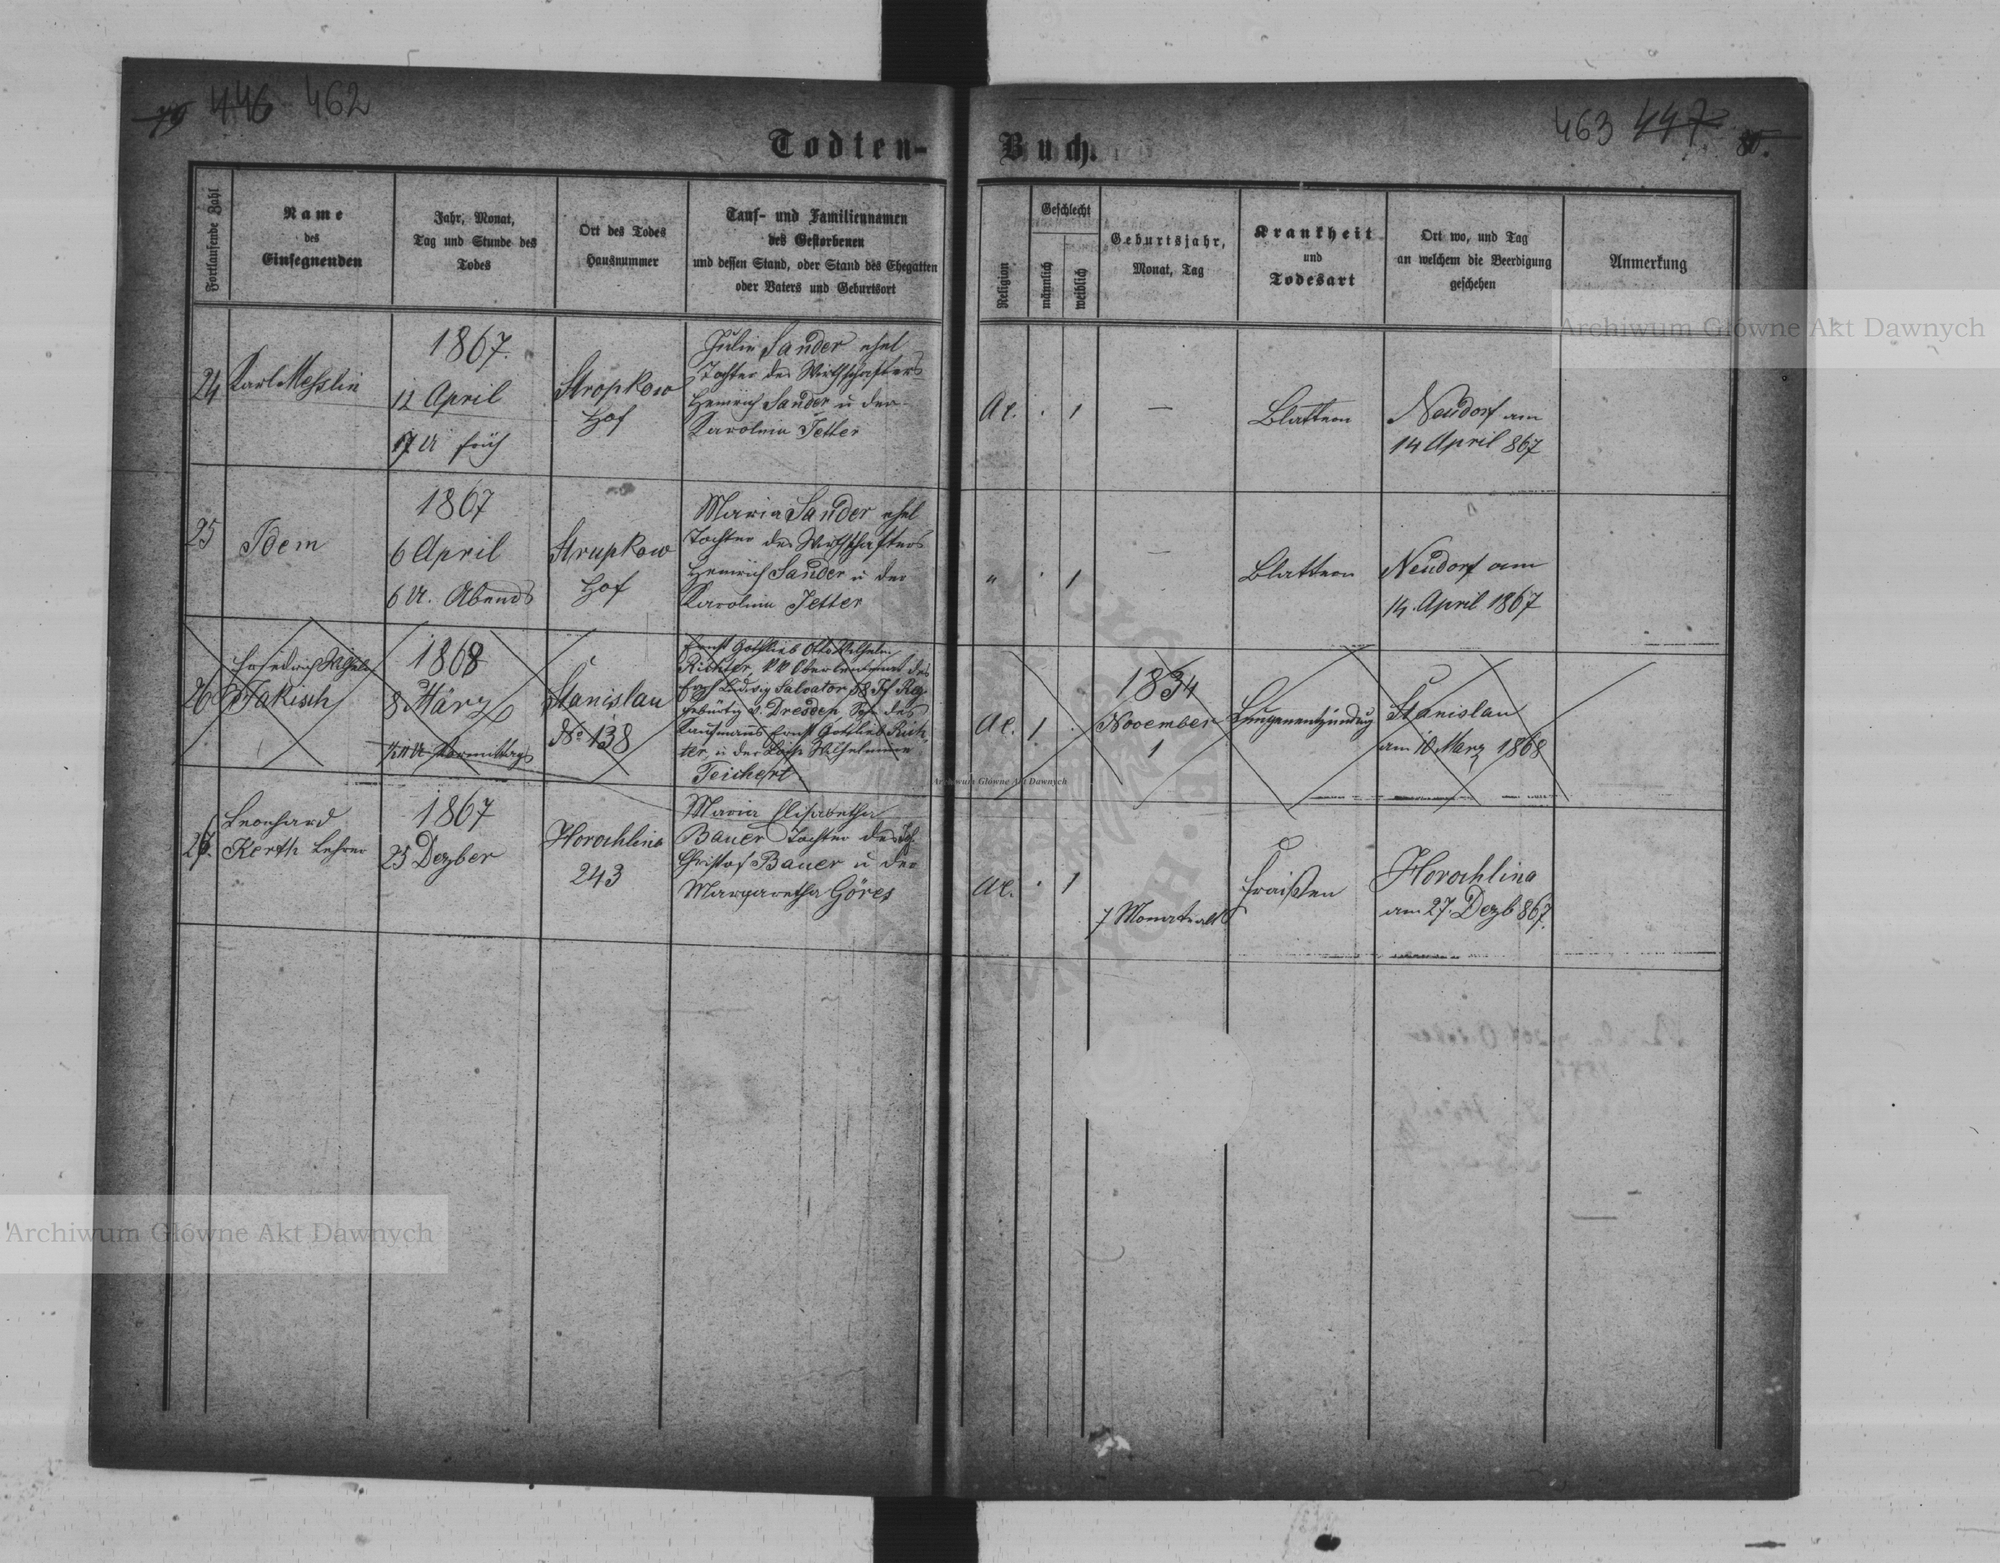 446 462
463 447
Todten-Buch.
Fortlaufende Zahl
Name
des
Einsegnenden
Jahr, Monat,
Tag und Stunde des
Todes
Ort des Todes
Hausnummer
Tauf- und Familiennamen
des Gestorbenen
und dessen Stand, oder Stand des Ehegatten
oder Vaters und Geburtsort
Religion
Geschlecht
männlich
weiblich
Geburtsjahr,
Monat, Tag
Krankheit
und
Todesart
Ort wo, und Tag
an welchem die Beerdigung
geschehen
Anmerkung
24
Karl Messlin
1867.
12 April
7 U früh
Stropkow
Hof
Julie Sander ehel
Tochter des Wirthschafters
Heinrich Sander u der
Karolina Jetter
AC. . 1
—
Blattern
Neudorf am
14 April 867
25
Idem
1867
6 April
6 U. Abends
Strupkow
Hof
Maria Sander ehel
Tochter des Wirthschafters
Heinrich Sander u der
Karolina Jetter
" . 1
—
Blattern
Neudorf am
14. April 1867
26
Friedrich Wilhelm
Jakisch
1868
8 März
Vormittags
Stanislau
No 138
Ernst Gottlieb Otto Wilhelm
Richter, KK Oberleutenant des
Erzh Ludwig Salvator 58 Reg
gebürtig v. Dresden Sohn des
Kaufmanns Ernst Gottlieb Rich-
ter u der Wilhelmine
Teichert
AC. 1 .
1834
November
1
Lungenentzündung
Stanislau
am 10 März 1868
Leonhard
Kerth Lehrer
1867
25 Dezber
Horochlina
243
Maria Elisabetha
Bauer Tochter des
Christof Bauer u der
Margaretha Göres
AC. . 1
7 Monate alt
Fraißen
Horochlina
am 27 Dezb 867.
Archiwum Główne Akt Dawnych
Archiwum Główne Akt Dawnych
Archiwum Główne Akt Dawnych